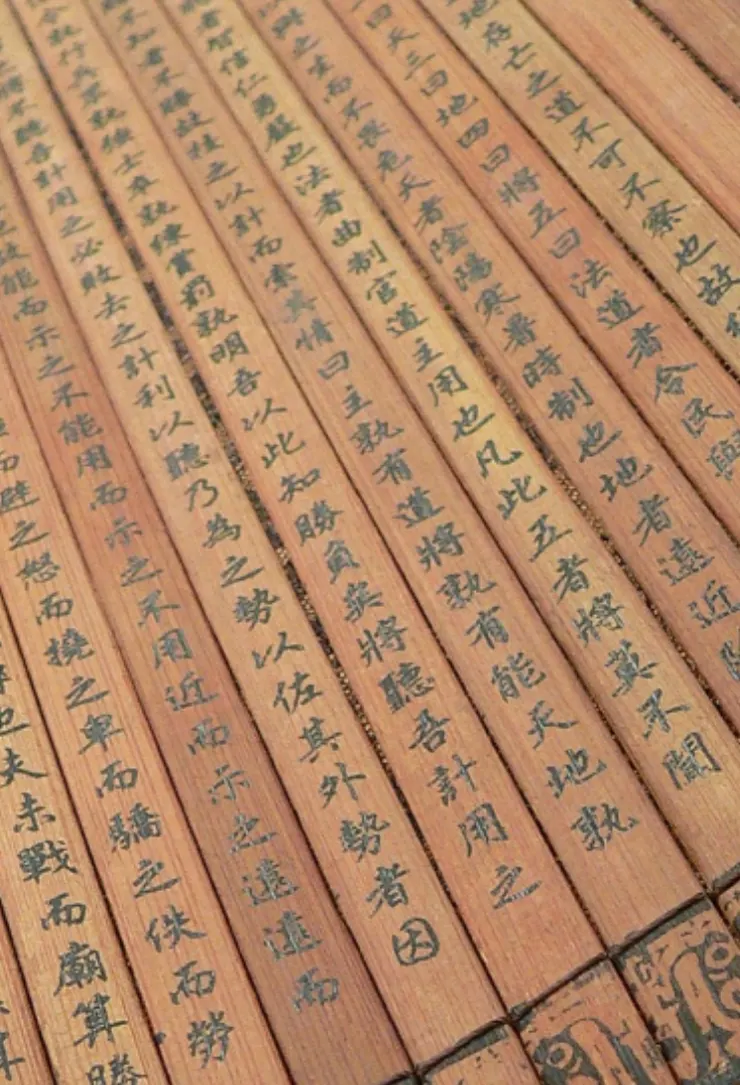 地存亡之道不可不察也故
曰天三曰地四曰將五曰法道者令民
之生而不畏危天者陰陽寒暑時制也地者遠近
者智信仁勇嚴也法者曲制官道主用也凡此五者將莫不聞
不知者不勝故校之以計而索其情曰主孰有道將孰有能天地孰
令孰行兵眾孰強士卒孰練賞罰孰明吾以此知勝負矣將聽吾計用之
不聽吾計用之必敗去之計利以聽乃為之勢以佐其外勢者因
故能而示之不能用而示之不用近而示之遠遠而
而避之怒而撓之卑而驕之佚而勞
也夫未戰而廟算勝
算